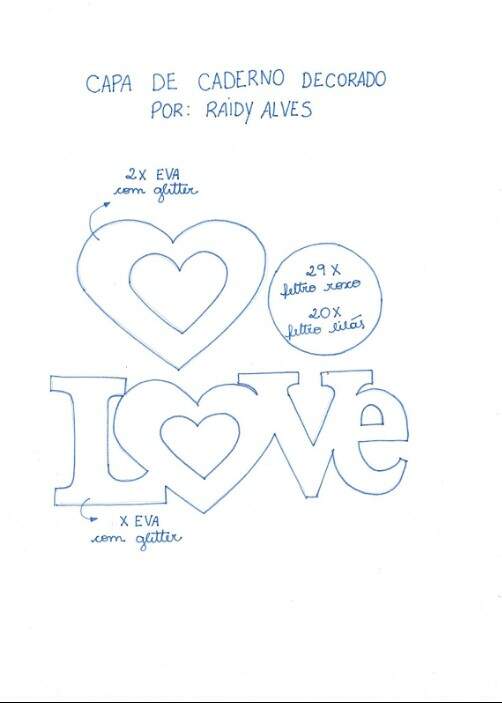 CAPA DE CADERNO DECORADO
POR: RAIDY ALVES
2X EVA
com glitter
29X
feltro roxo
20X
feltro lilás
LOVe
X EVA
com glitter